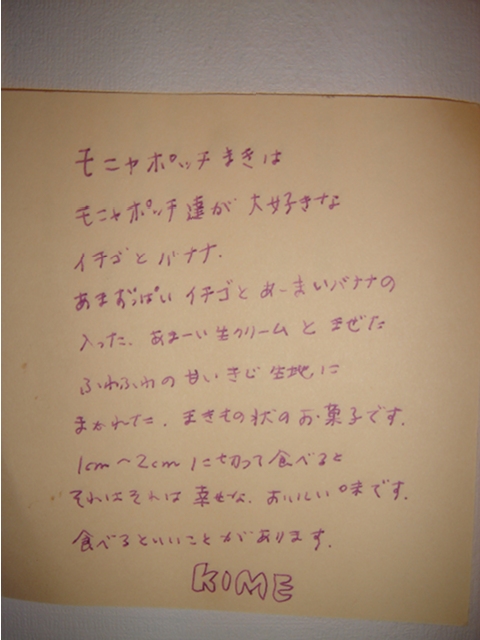 モニャポッチまきは
モニャポッチ達が大好きな
イチゴとバナナ.
あまずっぱいイチゴとあーまいバナナの
入った.あまーい生クリームとまぜた
ふわふわの甘いきじ生地に
まかれてた.まきもの状のお菓子です.
1cm〜2cmに切って食べると
それはそれは幸せな.おいしい味です.
食べるといいことがあります.
KIME